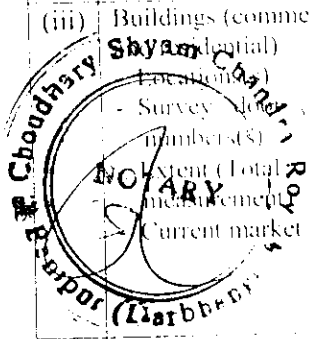 (iii) Buildings (comme
dential)
Location(s)
- Survey
numbers(s)
Extent (Total
measurement)
Current market
Choudhary Shyam Chandra Roy
NOTARY
(Darbhanga)